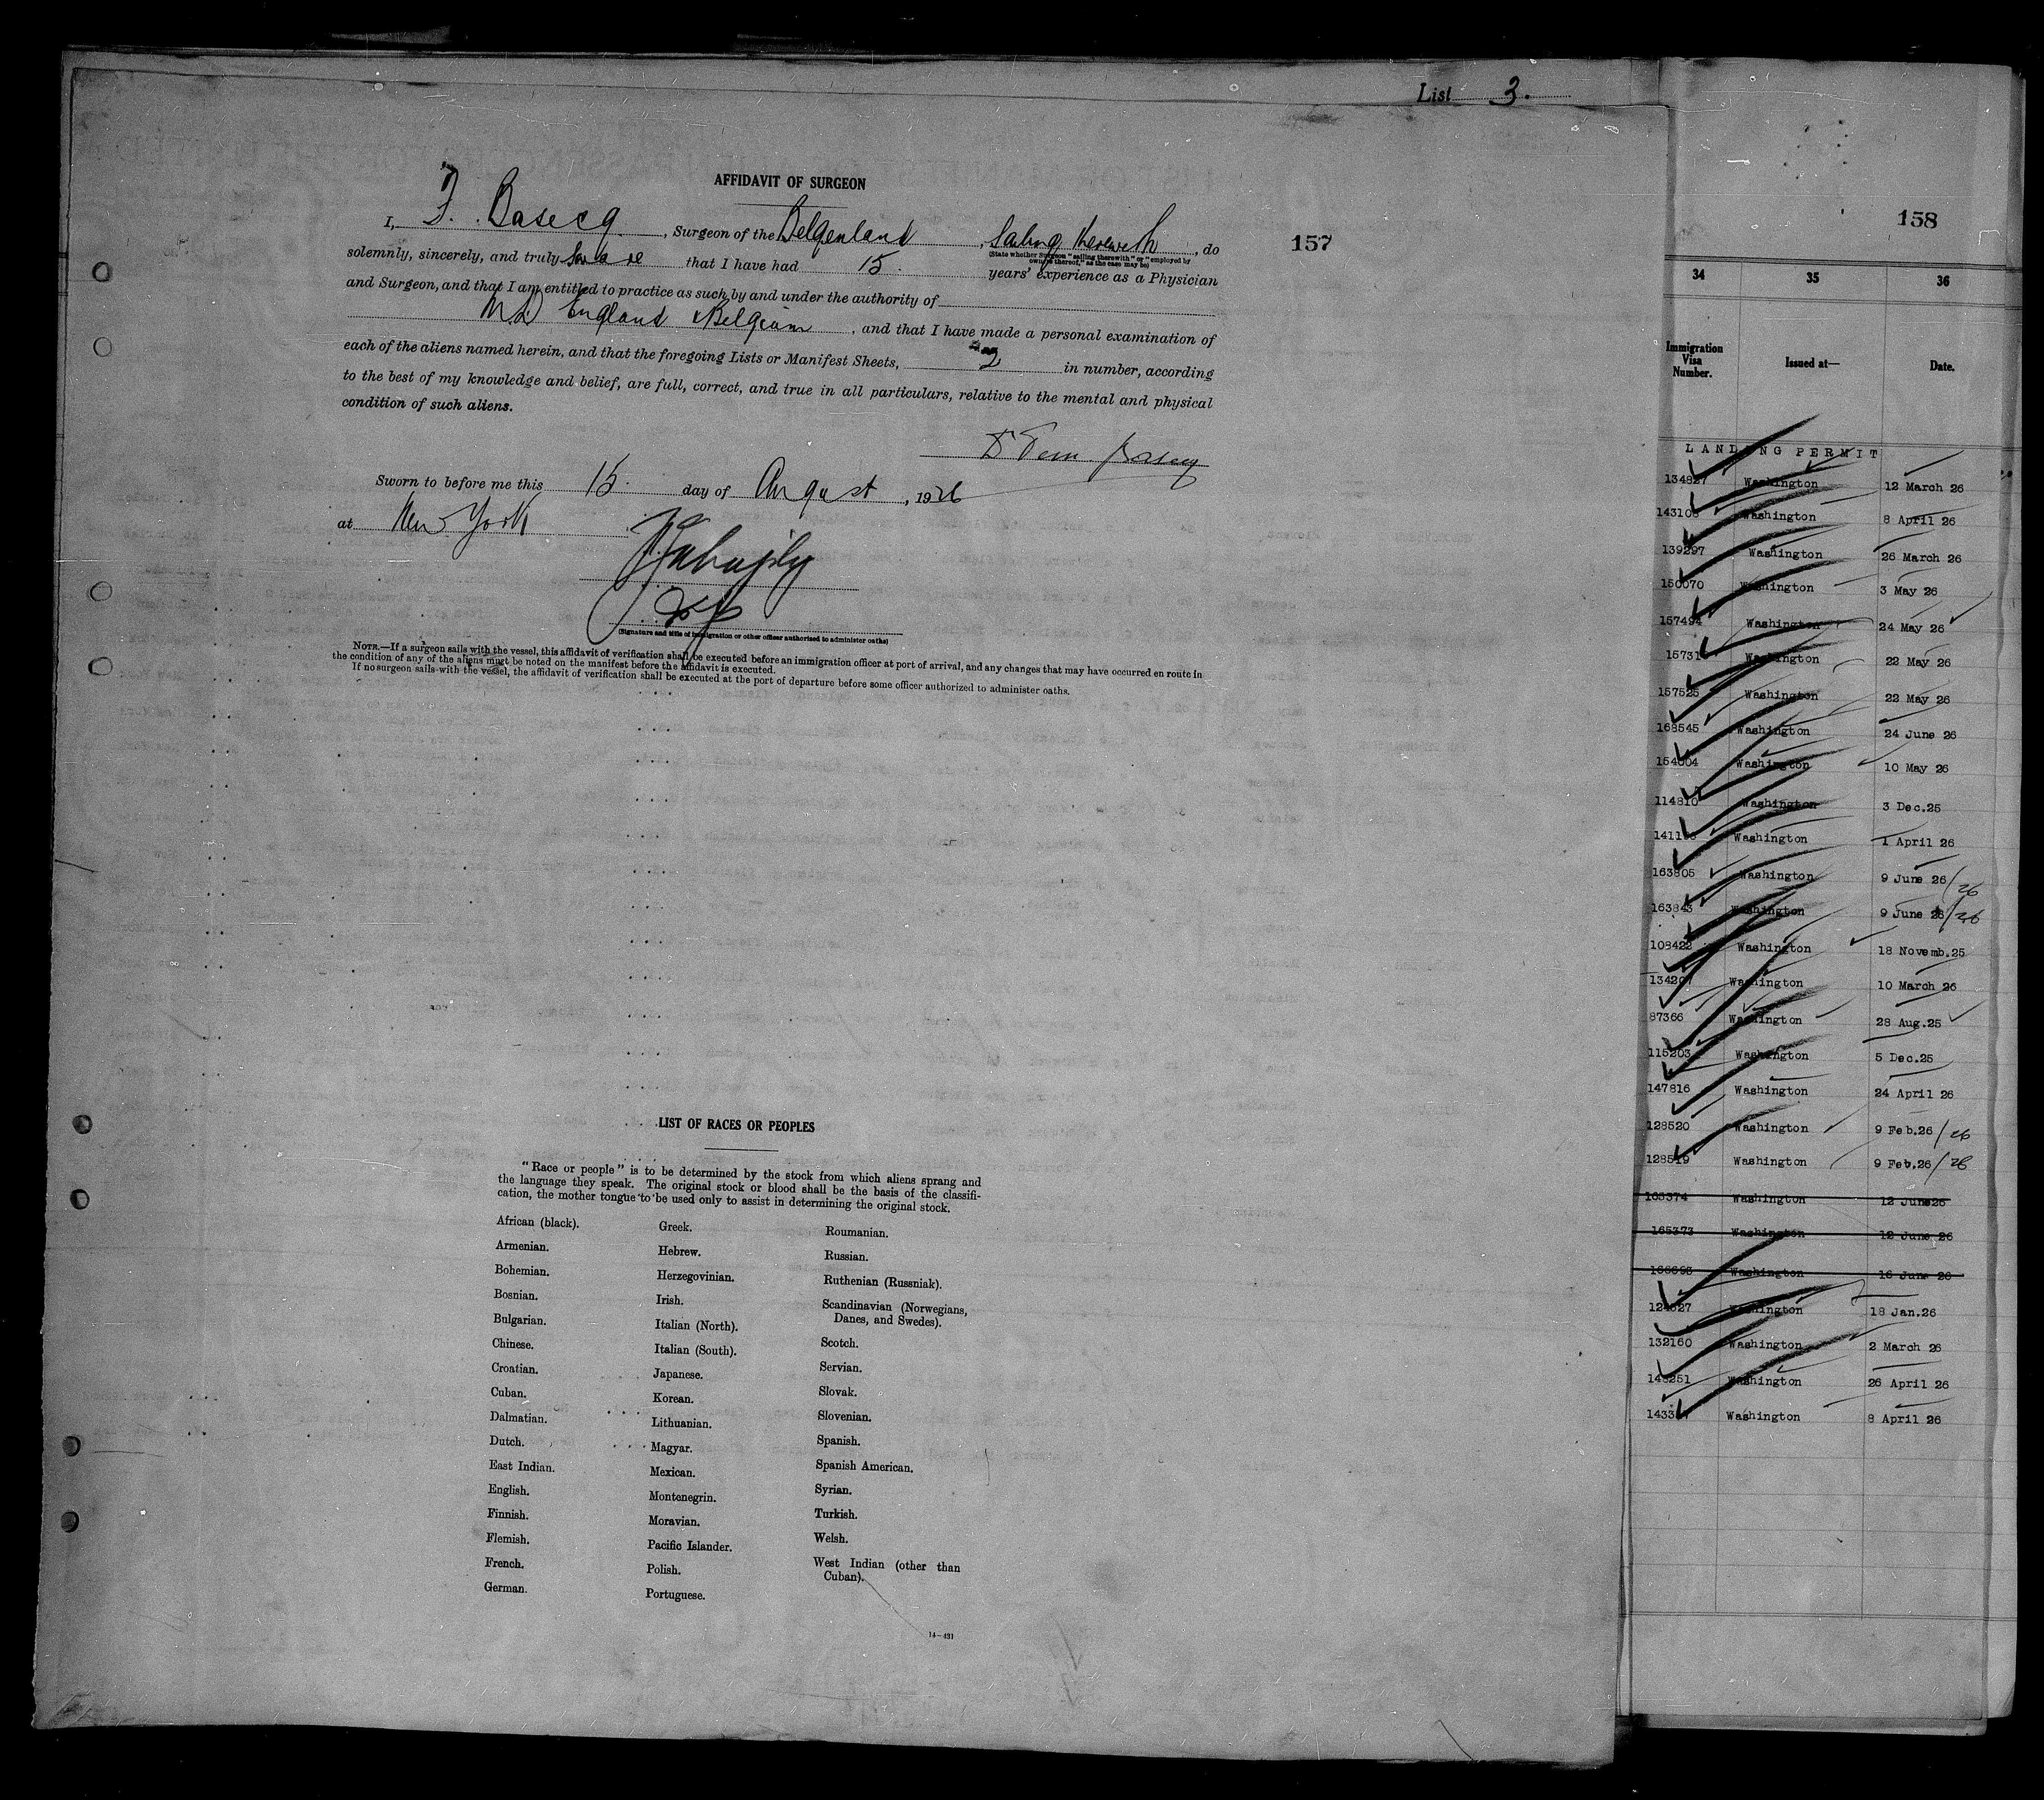 List 3.
AFFIDAVIT OF SURGEON
I, F. Basecq, Surgeon of the Belgenland, Sailing therewith, do
(State whether Surgeon "sailing therewith" or "employed by
owners thereof," as the case may be)
solemnly, sincerely, and truly swear that I have had 15. years' experience as a Physician
and Surgeon, and that I am entitled to practice as such by and under the authority of
MD England & Belgium, and that I have made a personal examination of
each of the aliens named herein, and that the foregoing Lists or Manifest Sheets, in number, according
to the best of my knowledge and belief, are full, correct, and true in all particulars, relative to the mental and physical
condition of such aliens.
Sworn to before me this 15. day of August, 1926
at New York
(Signature and title of immigration or other officer authorized to administer oaths)
NOTE.—If a surgeon sails with the vessel, this affidavit of verification shall be executed before an immigration officer at port of arrival, and any changes that may have occurred en route in
the condition of any of the aliens must be noted on the manifest before the affidavit is executed.
If no surgeon sails with the vessel, the affidavit of verification shall be executed at the port of departure before some officer authorized to administer oaths.
LIST OF RACES OR PEOPLES
"Race or people" is to be determined by the stock from which aliens sprang and
the language they speak. The original stock or blood shall be the basis of the classifi-
cation, the mother tongue to be used only to assist in determining the original stock.
African (black).
Armenian.
Bohemian.
Bosnian.
Bulgarian.
Chinese.
Croatian.
Cuban.
Dalmatian.
Dutch.
East Indian.
English.
Finnish.
Flemish.
French.
German.
Greek.
Hebrew.
Herzegovinian.
Irish.
Italian (North).
Italian (South).
Japanese.
Korean.
Lithuanian.
Magyar.
Mexican.
Montenegrin.
Moravian.
Pacific Islander.
Polish.
Portuguese.
Roumanian.
Russian.
Ruthenian (Russniak).
Scandinavian (Norwegians,
Danes, and Swedes).
Scotch.
Servian.
Slovak.
Slovenian.
Spanish.
Spanish American.
Syrian.
Turkish.
Welsh.
West Indian (other than
Cuban).
14—431
157
158
34 35 36
Immigration
Visa
Number.
Issued at—
Date.
LANDING PERMIT
134827 Washington 12 March 26
Washington 8 April 26
139297 Washington 26 March 26
150070 Washington 3 May 26
157494 Washington 24 May 26
Washington 22 May 26
157525 Washington 22 May 26
168545 Washington 24 June 26
154004 Washington 10 May 26
114810 Washington 3 Dec.25
Washington 1 April 26
163805 Washington 9 June 26 /26
163843 Washington 9 June 26 /26
108422 Washington 18 Novemb.25
134207 Washington 10 March 26
87366 Washington 28 Aug.25
115203 Washington 5 Dec.25
147816 Washington 24 April 26
128520 Washington 9 Feb.26 /26
128519 Washington 9 Feb.26 /26
Washington 12 June26
165373 Washington 12 June 26
Washington 16 June 26
Washington 18 Jan.26
132160 Washington 2 March 26
Washington 26 April 26
Washington 8 April 26